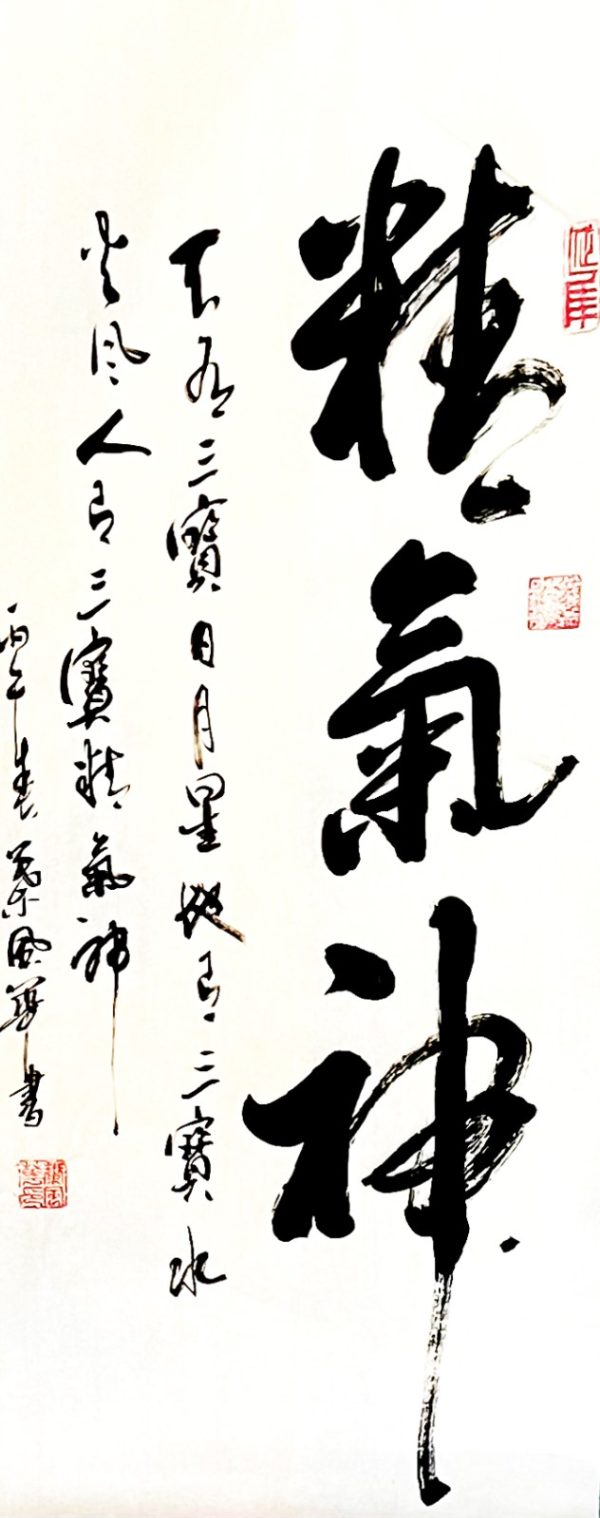 精氣神
天有三寶日月星地有三寶水
火风人有三寶精氣神
丙午春 风華書